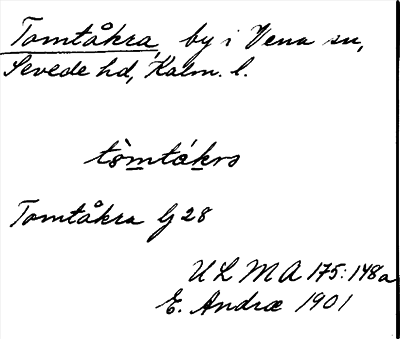 Tomtåkra, by i Vena sn,
Sevede hd, Kalm. l.
tòmtákrs
Tomtåkra G 28
ULMA 175:148a
E. Andræ 1901